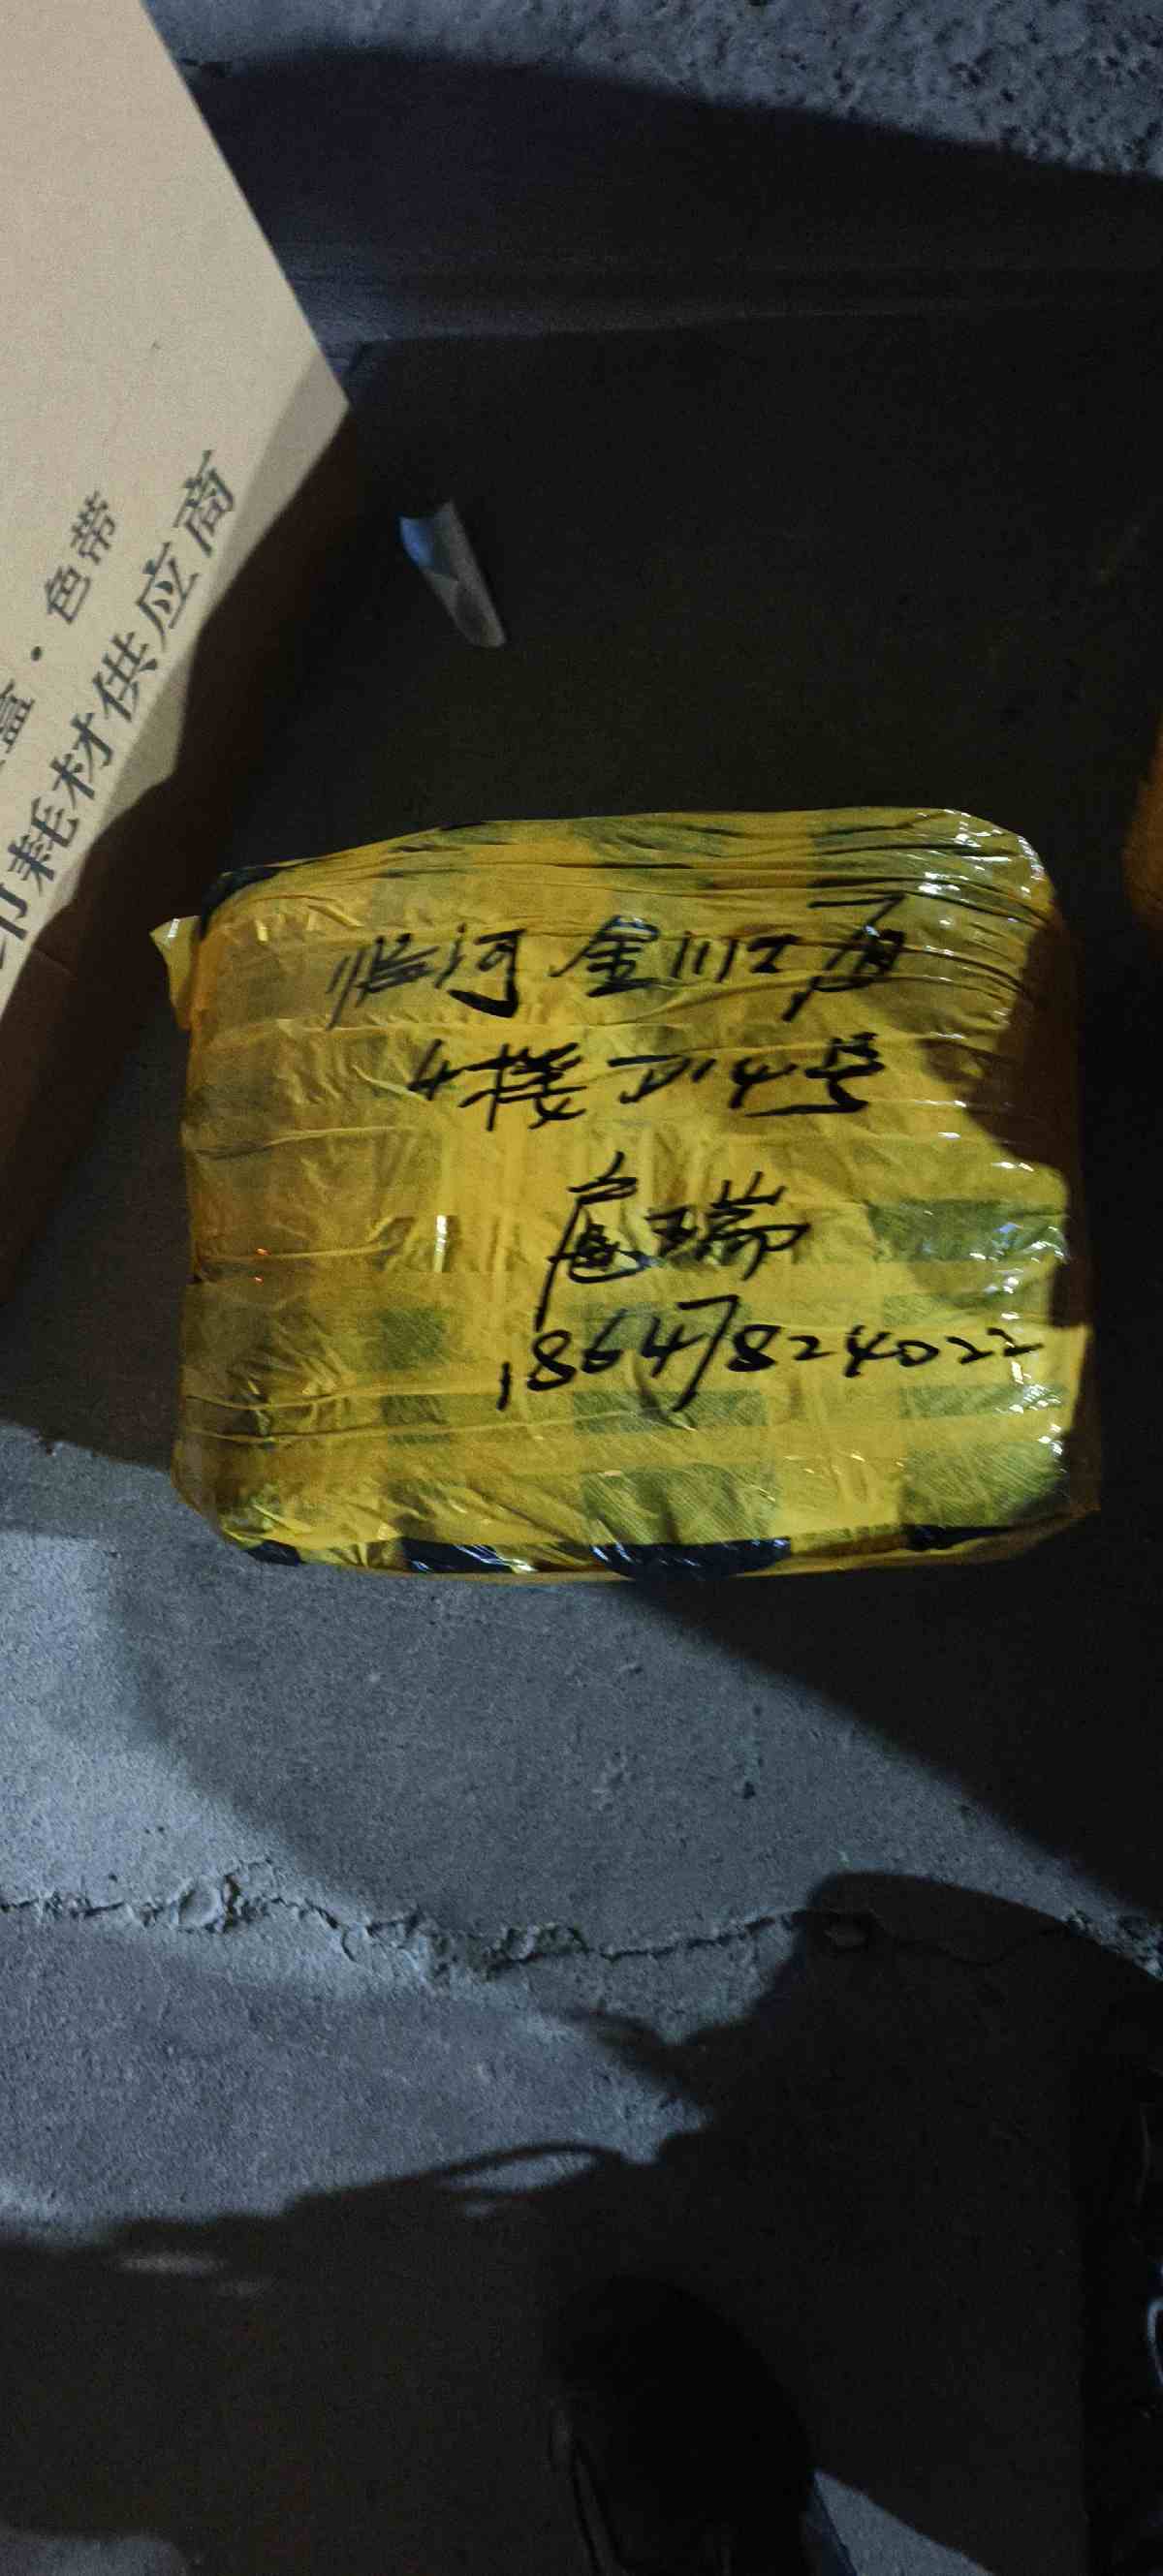 盒·色带
印耗材供应商
临河金川区
4楼D14号
瑞
18647824022